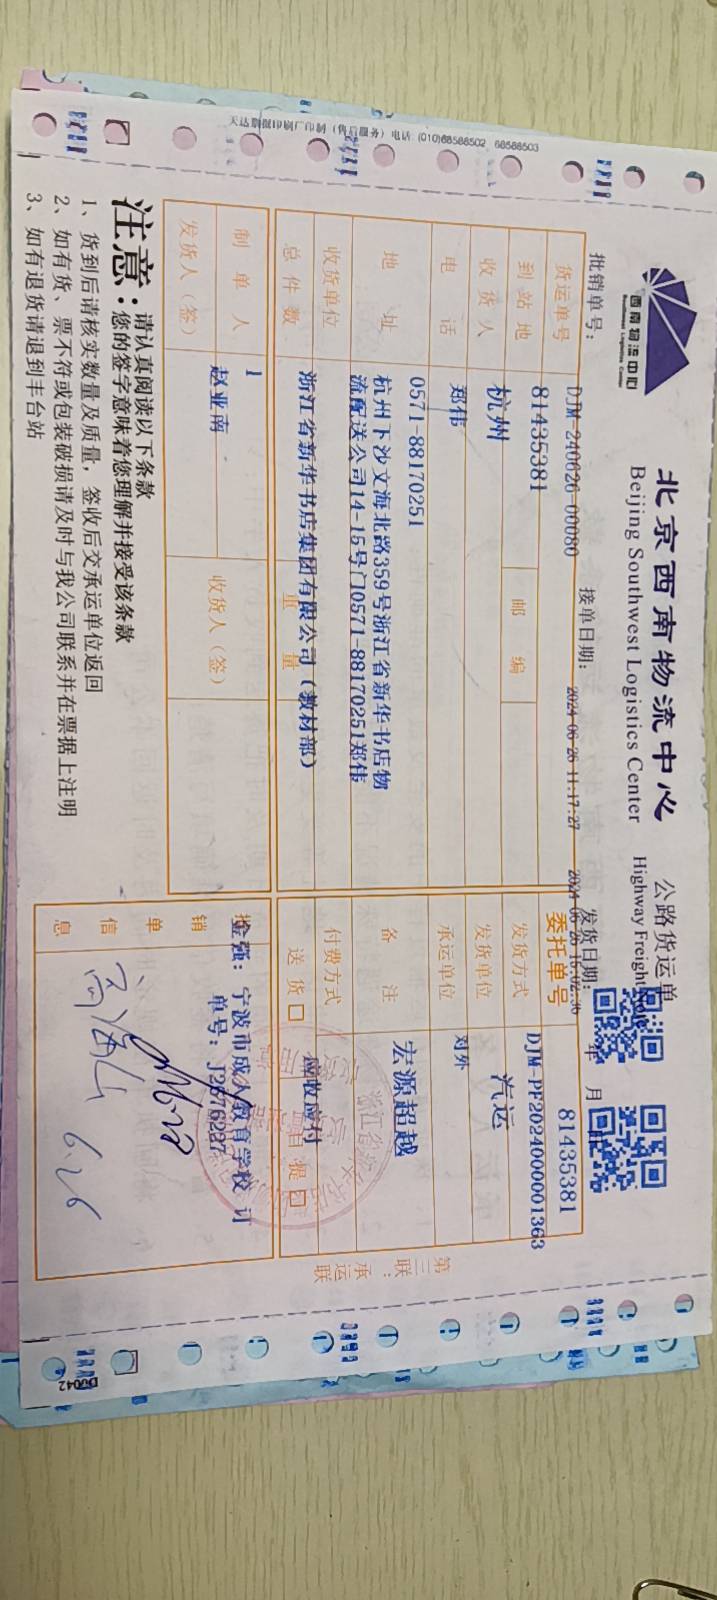 西南物流中心
Southwest Logistics Center
北京西南物流中心
公路货运单
Beijing Southwest Logistics Center
Highway Freight
批销单号: DJM-240626-00080
接单日期: 2024-06-26 11:17:27
发货日期: 年 月
货运单号 81435381
委托单号 81435381
DJM-PF2024000001363
到站地 杭州 邮编
发货方式 汽运
收货人 郑伟
发货单位 对外
电话 0571-88170251
承运单位 宏源超越
地址 杭州下沙文海北路359号浙江省新华书店物
流配送公司14-15号门0571-88170251郑伟
备注
收货单位 浙江省新华书店集团有限公司(教材部)
付费方式 应收应付
总件数 1 重量
送货 自提
制单人 赵亚南
发货人(签)
收货人(签)
销单信息
金强: 宁波市成人教育学校 订
单号: J2676227
6.26
第三联:承运联
注意:
请认真阅读以下条款
您的签字意味着您理解并接受该条款
1、货到后请核实数量及质量,签收后交承运单位返回
2、如有货、票不符或包装破损请及时与我公司联系并在票据上注明
3、如有退货请退到丰台站
电话:(010)68588502 68588503